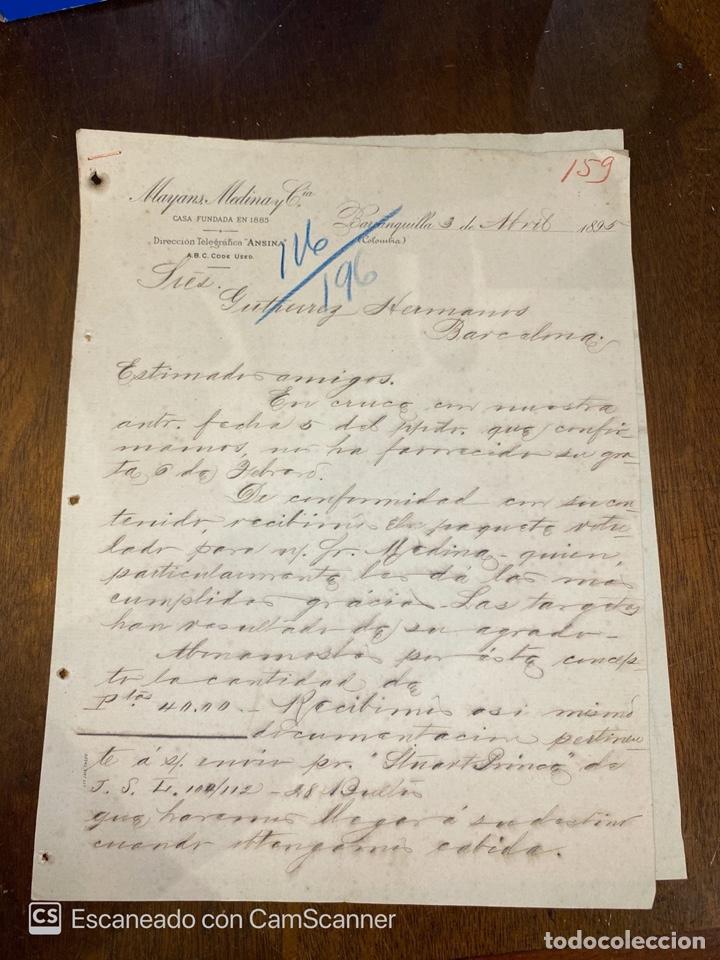 159
Mayans, Medina y Cía
CASA FUNDADA EN 1885
Dirección Telegráfica "ANSINA"
A.B.C. CODE USED.
Barranquilla 3 de Abril 1895
(Colombia)
116
196
Srés.
Gutierrez Hermanos
Barcelona.
Estimados amigos.
En cruce con nuestra
antr. fecha 5 del ppdo. que confir-
mamos, nos ha favorecido su gra-
ta 6 de Febrero.
De conformidad con su con-
tenido, recibimos el paquete rotu-
lado para n/. Sr. Medina - quien,
particularmente les dá las mas
cumplidas grácias - Las targetas
han resultado de su agrado -
Abonamosles por éste concep-
to la cantidad de
Ptas 40.00. - Recibimos asi mismo
documentacion pertinen-
te á s/. envio pr. "Stuart Prince" de
J. S. L. 101/112 - 28 Bultos
que haremos llegar á su destino
cuando obtengamos cabida.
CS Escaneado con CamScanner
todocoleccion